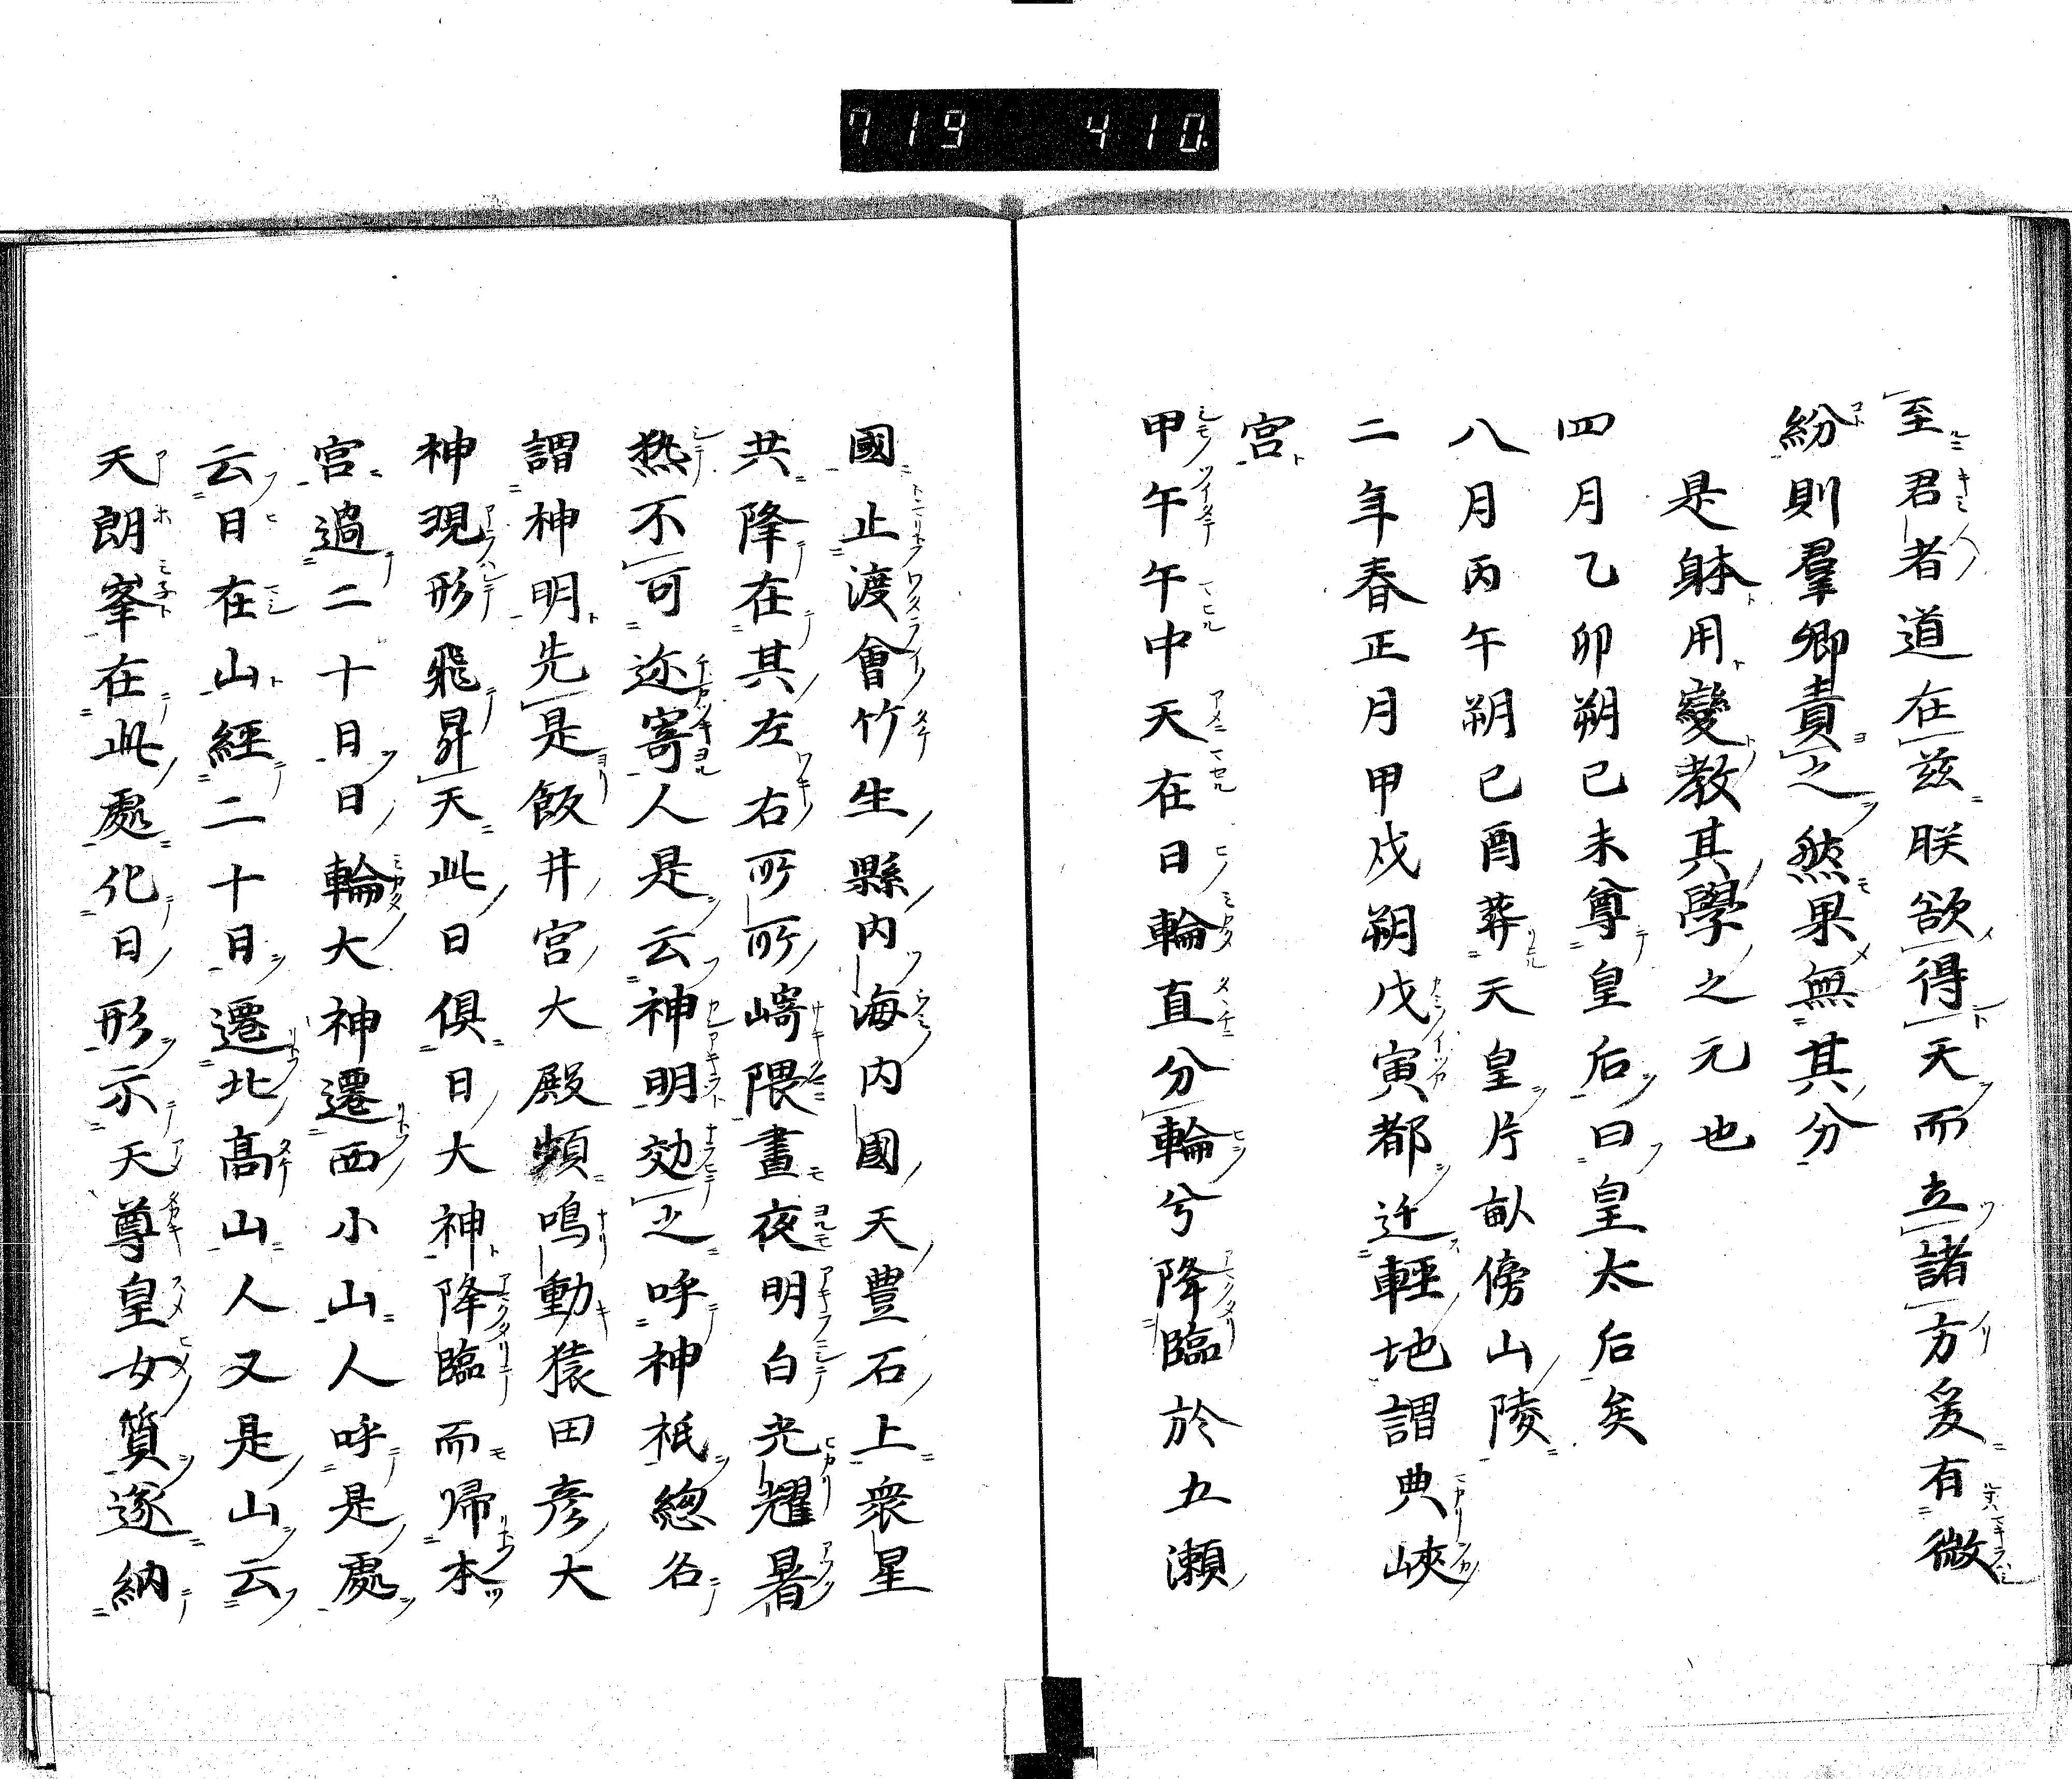 719 410
至君者道在茲朕欲得天而立諸方爰有微
紛則羣卿責之然果無其分
是躰用變教其學之元也
四月乙卯朔己未尊皇后曰皇太后矣
八月丙午朔己酉葬天皇片畝傍山陵
二年春正月甲戌朔戊寅都迁輕地謂典峽
宮
甲午午中天在日輪直分輪兮降臨於五瀬
國止渡會竹生縣内海内國天豊石上衆星
共降在其左右所所崎隈晝夜明白光耀暑
熱不可迩寄人是云神明効之呼神祇緫名
謂神明先是飯井宮大殿頻鳴動猿田彦大
神現形飛昇天此日倶日大神降臨而帰本
宮過二十日日輪大神遷西小山人呼是處
云日在山經二十日遷北高山人又是山云
天朗峯在此處化日形示天尊皇女質遂納